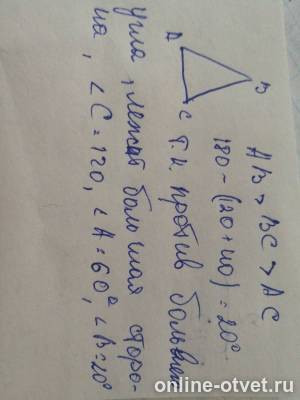 A
B
C
AB > BC > AC
180 - (120 + 40) = 20°
т.к. против больше
угла, лежит большая сторо-
на, ∠C = 120, ∠A = 60°, ∠B = 20°
online-otvet.ru